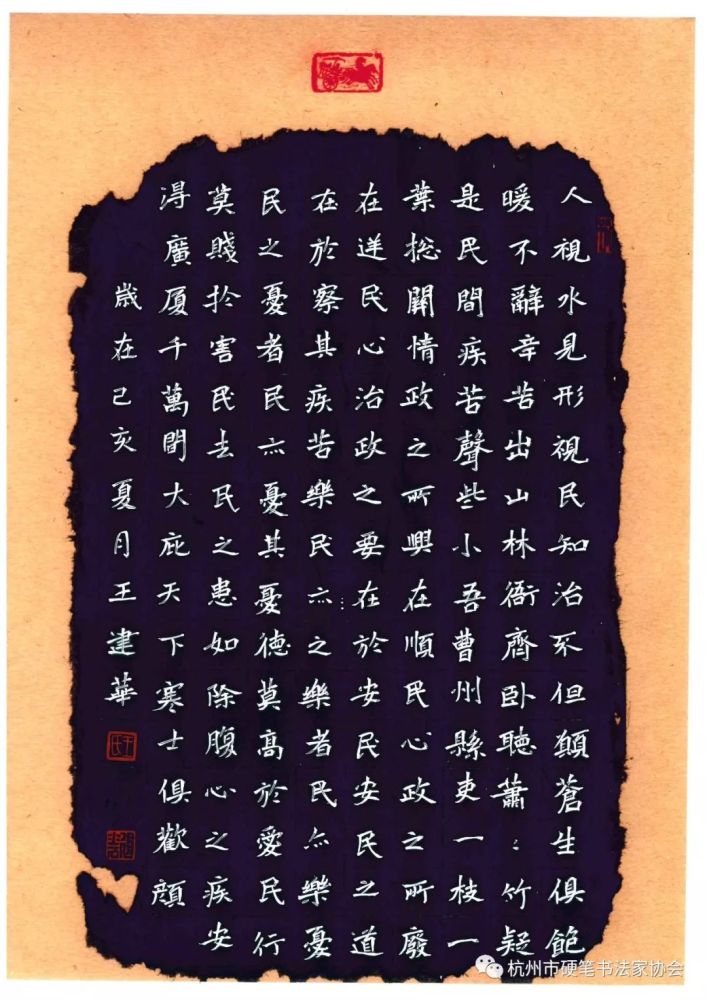 人視水見形視民知治不但願蒼生俱飽
暖不辭辛苦出山林衙齊卧聽蕭：竹疑
是民間疾苦聲些小吾曹州縣吏一枝一
葉揔關情政之所興在順民心政之所廢
在逆民心治政之要在於安民安民之道
在於察其疾苦樂民亦之樂者民亦樂憂
民之憂者民亦憂其憂德莫高於愛民行
莫賤於害民去民之患如除腹心之疾安
得廣厦千萬間大庇天下寒士俱歡顔
歲在己亥夏月王建華
杭州市硬笔书法家协会